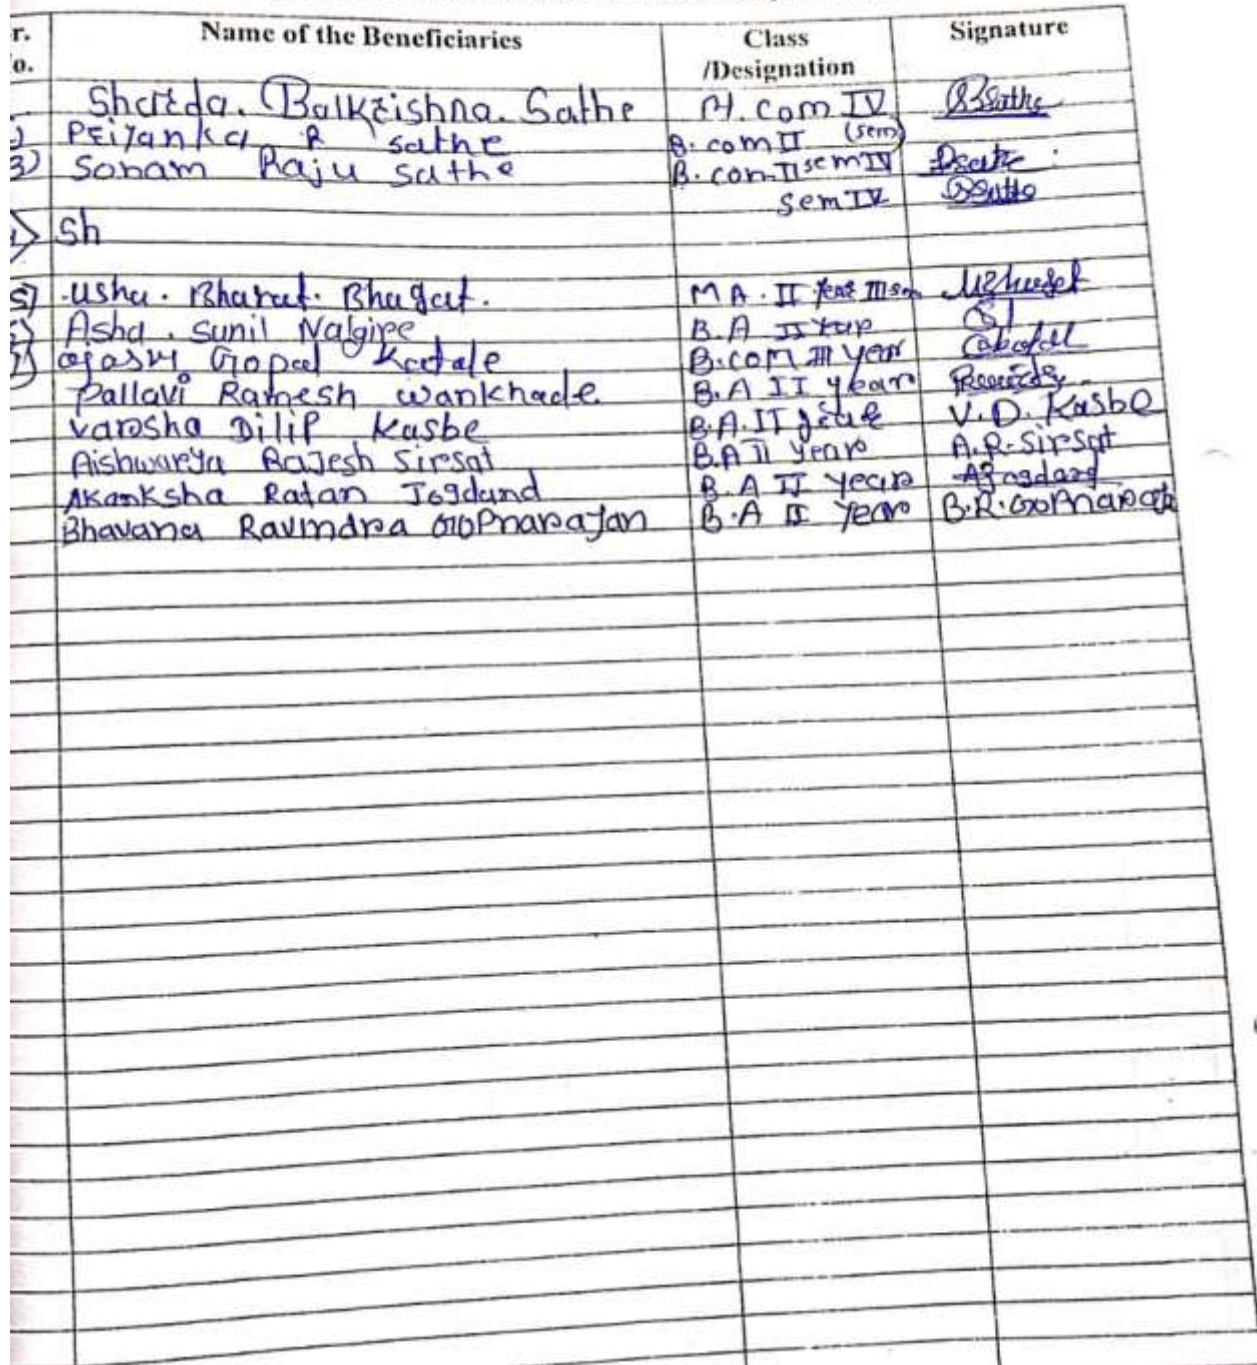 r. Name of the Beneficiaries Class Signature
o. /Designation
Sharda. Balkrishna. Sathe M. com IV BSathe
) Priyanka R sathe B. com II (sem)
3) Sonam Raju sathe B. com II sem IV
sem IV
) Sh
5) Usha. Bharat. Bhagat. M A. II year III sem
) Asha. Sunil Nalgire B.A II
) Gopal B.com III year
Pallavi Ramesh wankhade B.A II year
varsha Dilip Kasbe B.A. II V.D. Kasbe
Aishwarya Rajesh Sirsat B.A II year A.R. Sirsat
Akanksha Ratan Jogdand B.A II year
Bhavana Ravindra Gopnarayan B.A II year B.R.